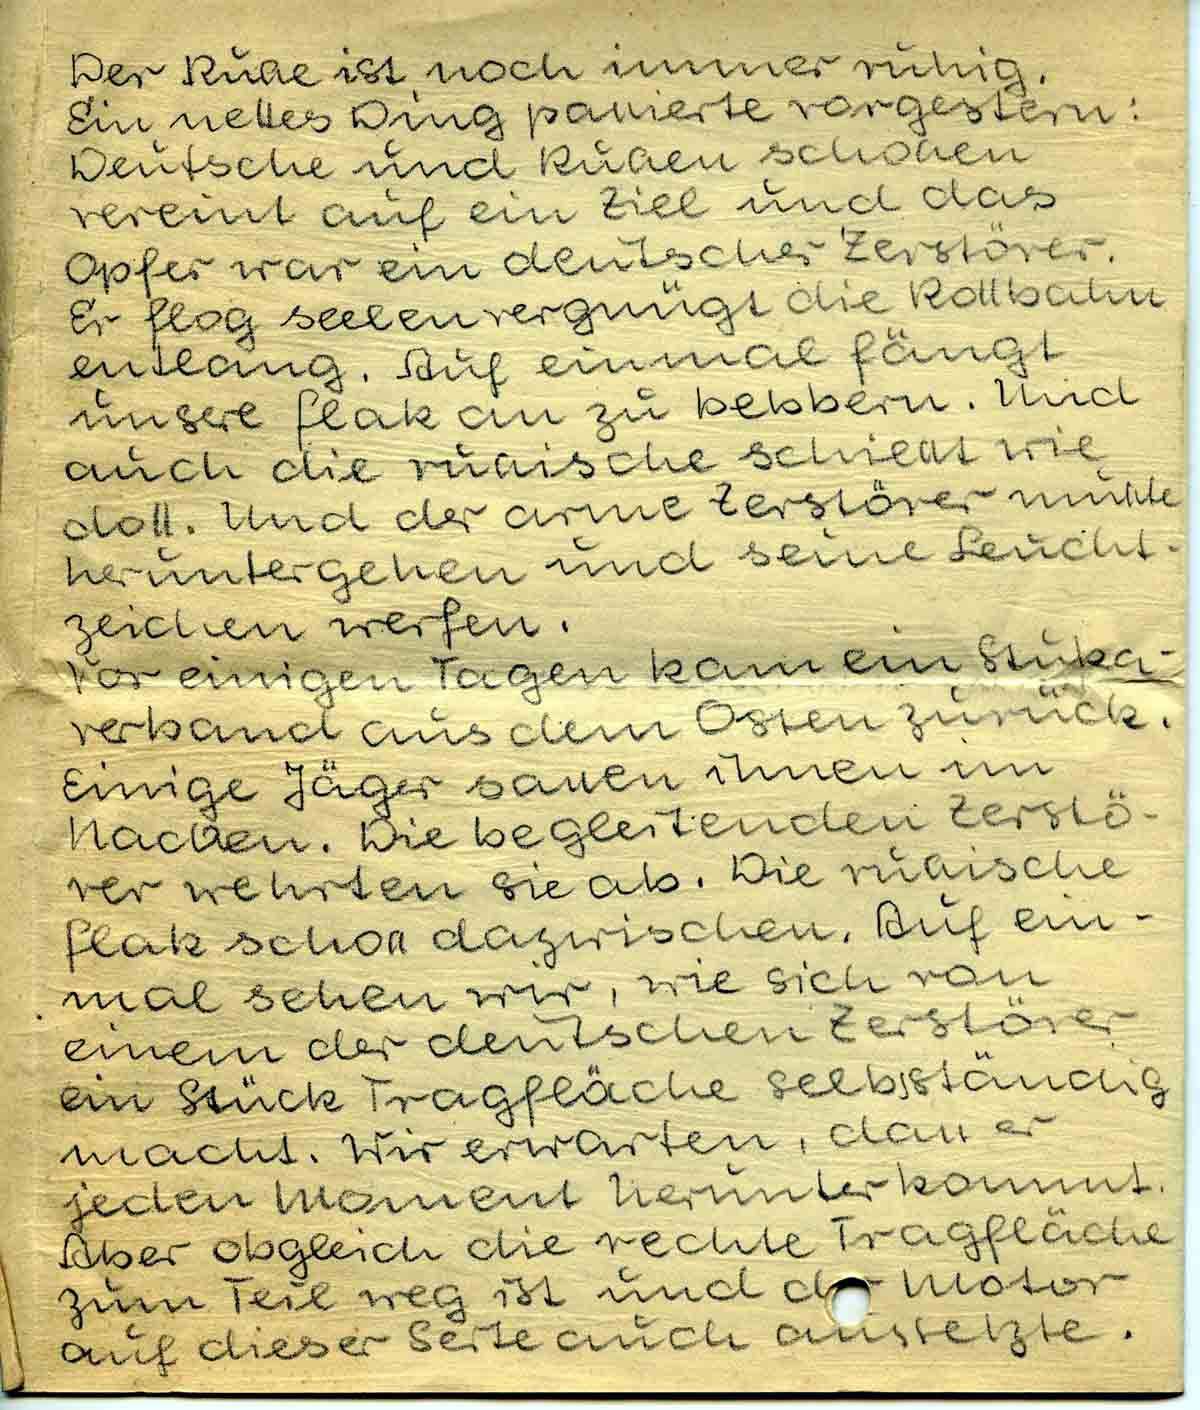 Der Russe ist noch immer ruhig.
Ein nettes Ding passierte vorgestern:
Deutsche und Russen schossen
vereint auf ein Ziel und das
Opfer war ein deutscher Zerstörer.
Er flog seelenvergnügt die Rollbahn
entlang. Auf einmal fängt
unsere Flak an zu bebbern. Und
auch die russische schiesst wie
doll. Und der arme Zerstörer musste
heruntergehen und seine Leucht-
zeichen werfen.
Vor einigen Tagen kam ein Stuka-
verband aus dem Osten zurück.
Einige Jäger sassen ihnen im
Nacken. Die begleitenden Zerstö-
rer wehrten sie ab. Die russische
Flak schoss dazwischen. Auf ein-
mal sehen wir, wie sich von
einem der deutschen Zerstörer
ein Stück Tragfläche selbsständig
macht. Wir erwarten, dass er
jeden Moment herunterkommt.
Aber obgleich die rechte Tragfläche
zum Teil weg ist und der Motor
auf dieser Seite auch aussetzte.